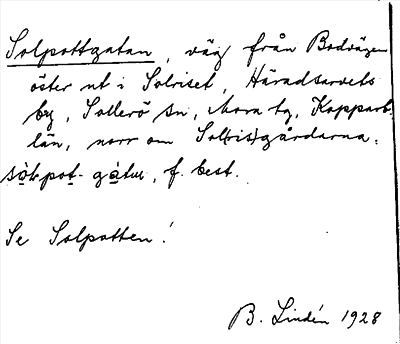 Solpottgatan, väg från Bodvägen
öster ut i Solriset, Häradsarvets
by, Sollerö sn, Mora tg, Kopparb.
län, norr om Sol(ris)gårdarna.
gátu, f. best.
Se Solpotten!
B. Lindén 1928